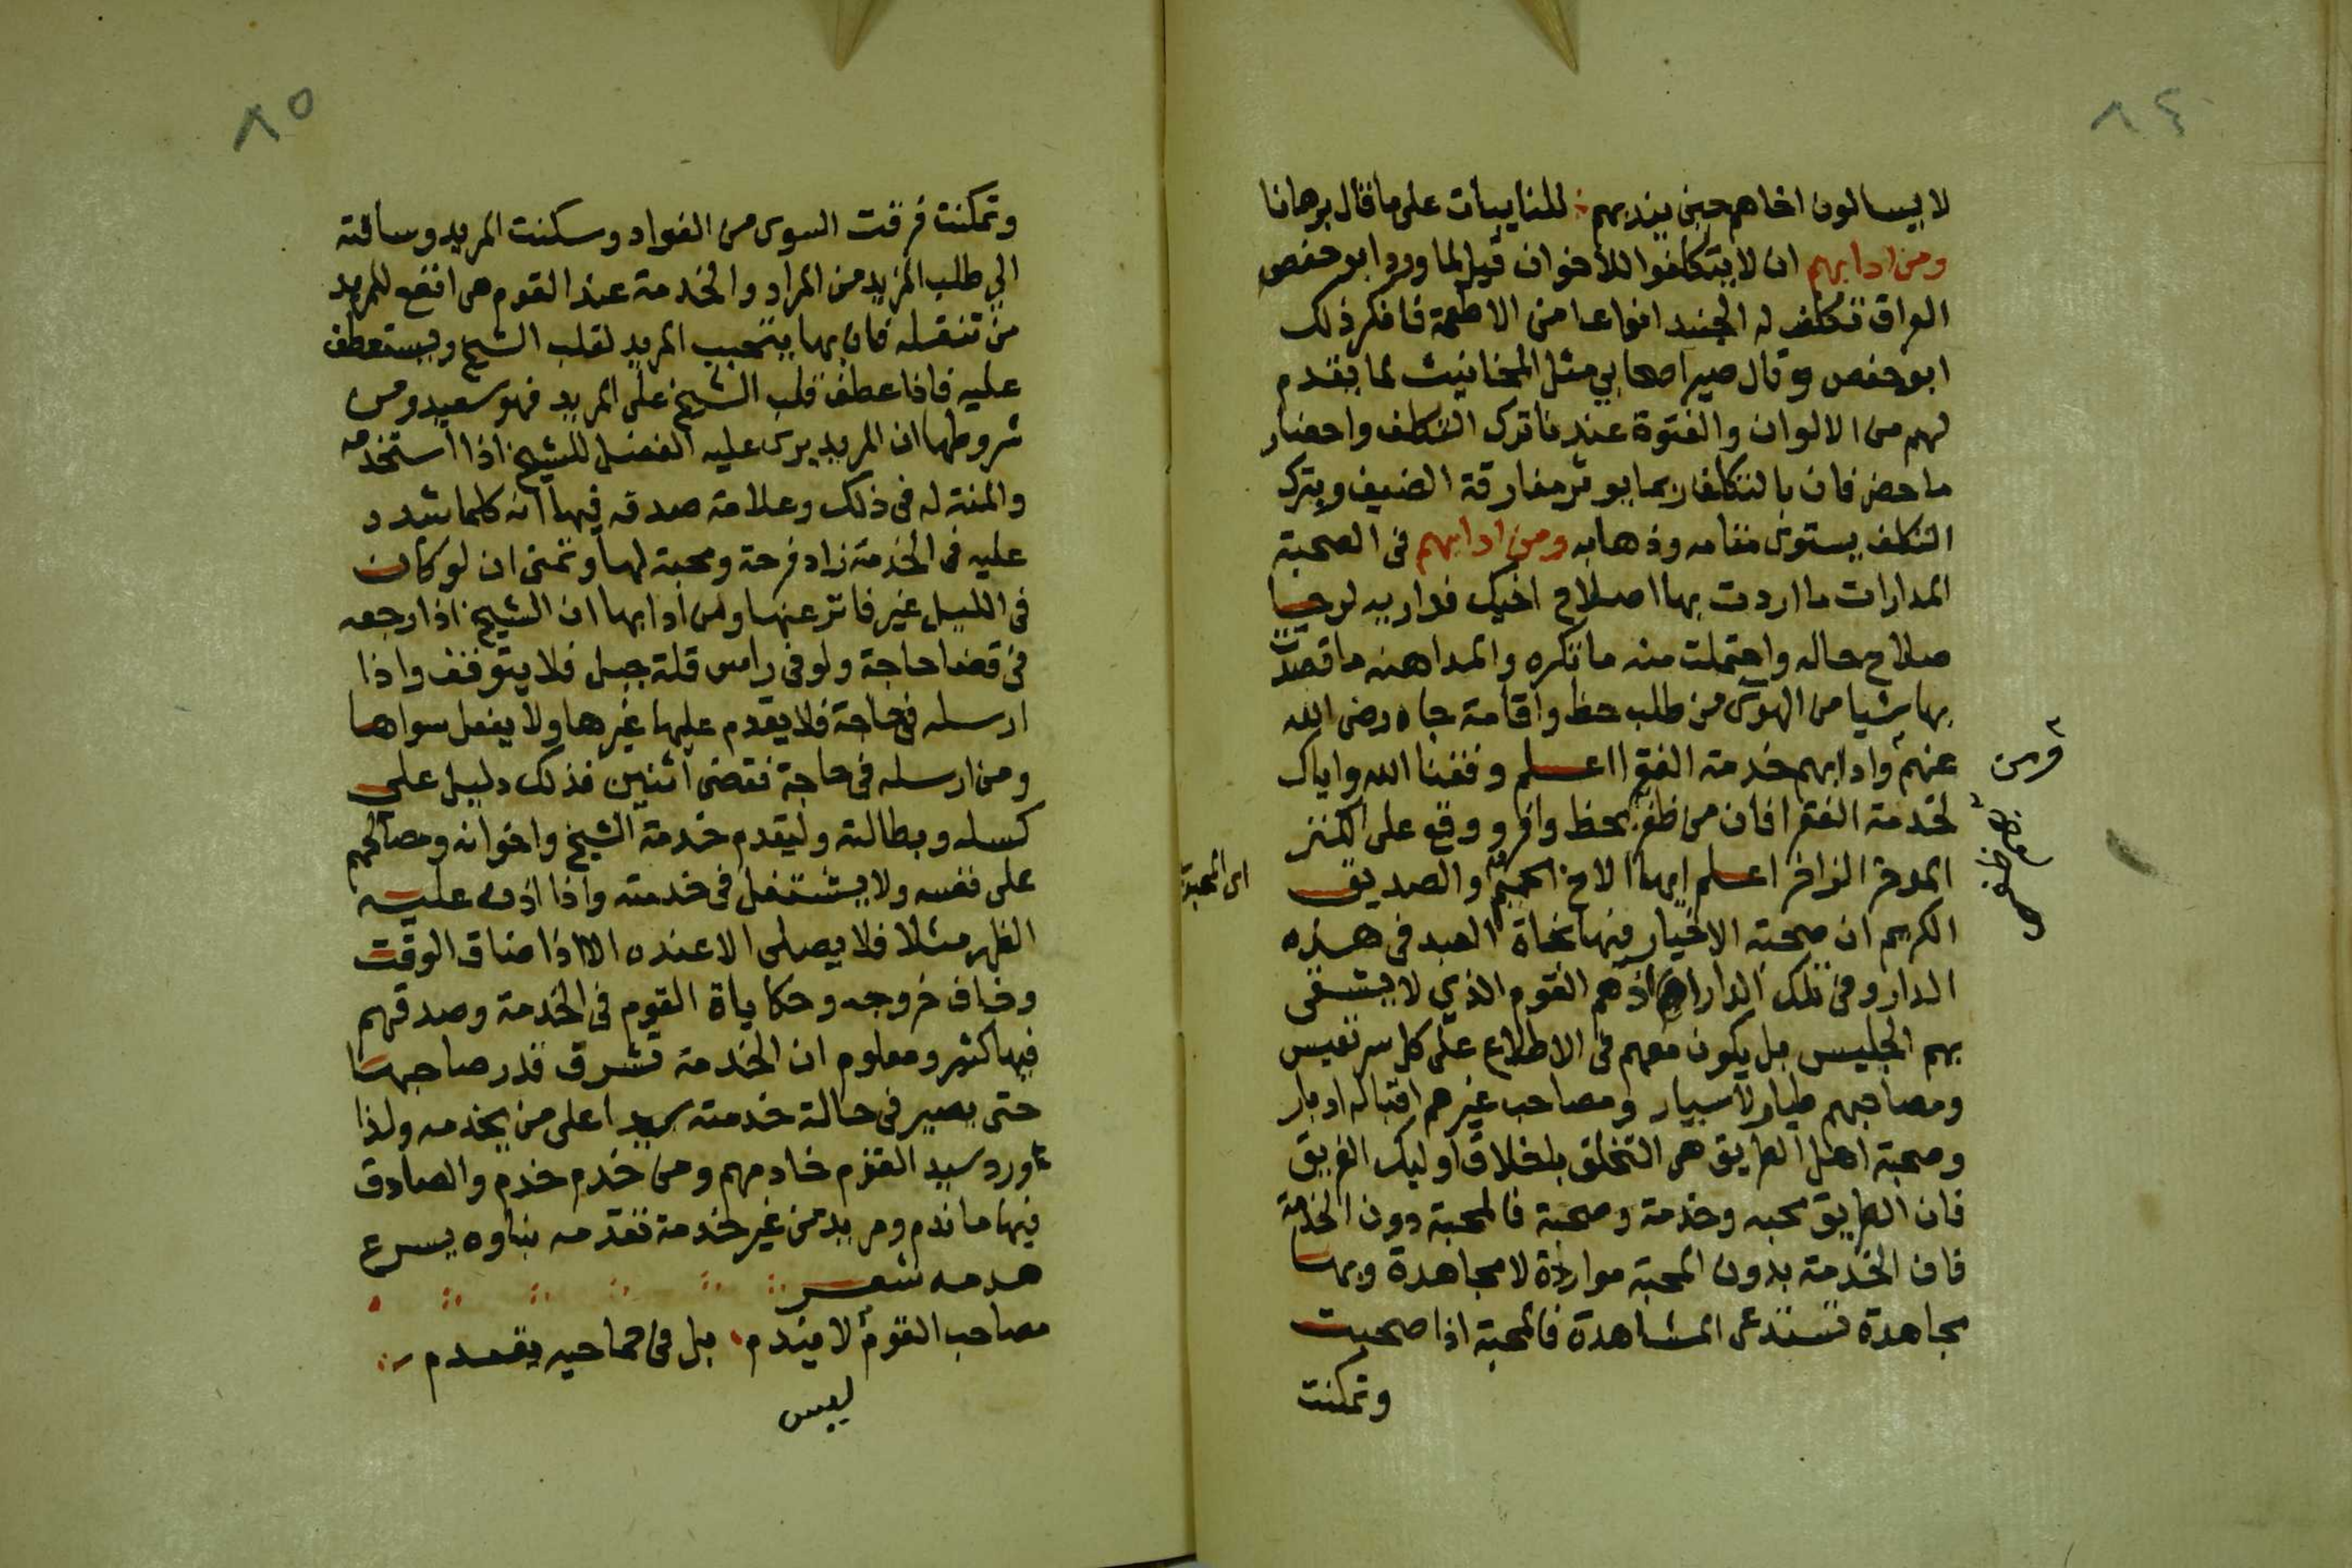 ٨٤
لا يسالون اخاهم حين يندبهم ∴ للنايبات على ما قال برهانا
ومن ادابهم ان لا يتكلفوا للاخوان قيل لما ورد ابو حفص
العراق تكلف له الجنيد انواعا من الاطعمة فانكر ذلك
ابو حفص وقال صير اصحابي مثل المخانيث لما يقدم
لهم من الالوان والفتوة عندنا ترك التكلف واحضار
ما حضر فان بالتكلف ربما يوثر مفارقة الضيف وبترك
التكلف يستوى مقامه وذهابه ومن ادابهم فى الصحبة
المدارات ما اردت بها اصلاح اخيك فداريه لرجا
صلاح حاله واحتملت منه ما تكره والمداهنه ما قصدت
بها شيا من الهوى من طلب حظ واقامة جاه رضى الله
عنهم وادابهم خدمة الفقرا اعلم وفقنا الله واياك
ومن
لخدمة الفقرا فان من ظفر بحظ وافر ووقع على الكنز
الموفر الزاخر اعلم ايها الاخ الحميم والصديق
الكريم ان صحبة الاخيار فيها نجاة العبد فى هذه
الدار وفى تلك الدار اذ هم القوم الذي لا يشقى
بهم الجليس بل يكون معهم فى الاطلاع على كل سر نفيس
ومصاحبهم طيار لا سيار ومصاحب غيرهم اقباله ادبار
وصحبة اهل الطريق هى التخلق بلخلاق اوليك الفريق
فان الطريق محبه وخدمة وصحبة فالمحبة دون الخدمة
فان الخدمة بدون المحبة مواردة لا مجاهدة وبها
مجاهدة تستدعى المشاهدة فالمحبة اذا صحبت
وتمكنت
٨٥
وتمكنت فرقت السوى من الفواد وسكنت المريد وساقته
الي طلب المزيد من المراد والخدمة عند القوم هى انفع للمريد
من تنفله فان بها يتحبب المريد لقلب الشيخ ويستعطف
عليه فاذا عطف قلب الشيخ على المريد فهو سعيد ومن
شروطها ان المريد يرى عليه الفضل للشيخ اذا استخدمه
والمنة له فى ذلك وعلامة صدقه فيها انه كلما شدد
عليه فى الخدمة زاد فرحة ومحبة لها وتمنى ان لو كان
فى الليل غير فاتر عنها ومن ادابها ان الشيخ اذا رجعه
فى قضا حاجة ولو فى راس قلة جبل فلا يتوقف واذا
ارسله فى حاجة فلا يقدم عليها غيرها ولا يفعل سواها
ومن ارسله فى حاجة فقضى اثنين فذلك دليل على
كسله وبطالته وليقدم خدمة الشيخ واخوانه ومصالحهم
على نفسه ولا يشتغل فى خدمته واذا اذن عليه
الظهر مثلا فلا يصلى الا عنده الا اذا ضاق الوقت
وخاف خروجه وحكاياة القوم فى الخدمة وصدقهم
فيها كثير ومعلوم ان الخدمة تشرق قدر صاحبها
حتى يصير فى حالة خدمته سيدا على من يخدمه ولذا
ورد سيد القوم خادمهم ومن خدم خدم والصادق
فيها ما ندم ومريد من غير خدمة تقدمه بناوه يسرع
هدمه شعر
مصاحب القوم لا يندم ، بل فى حماحيه يقدم
ليس